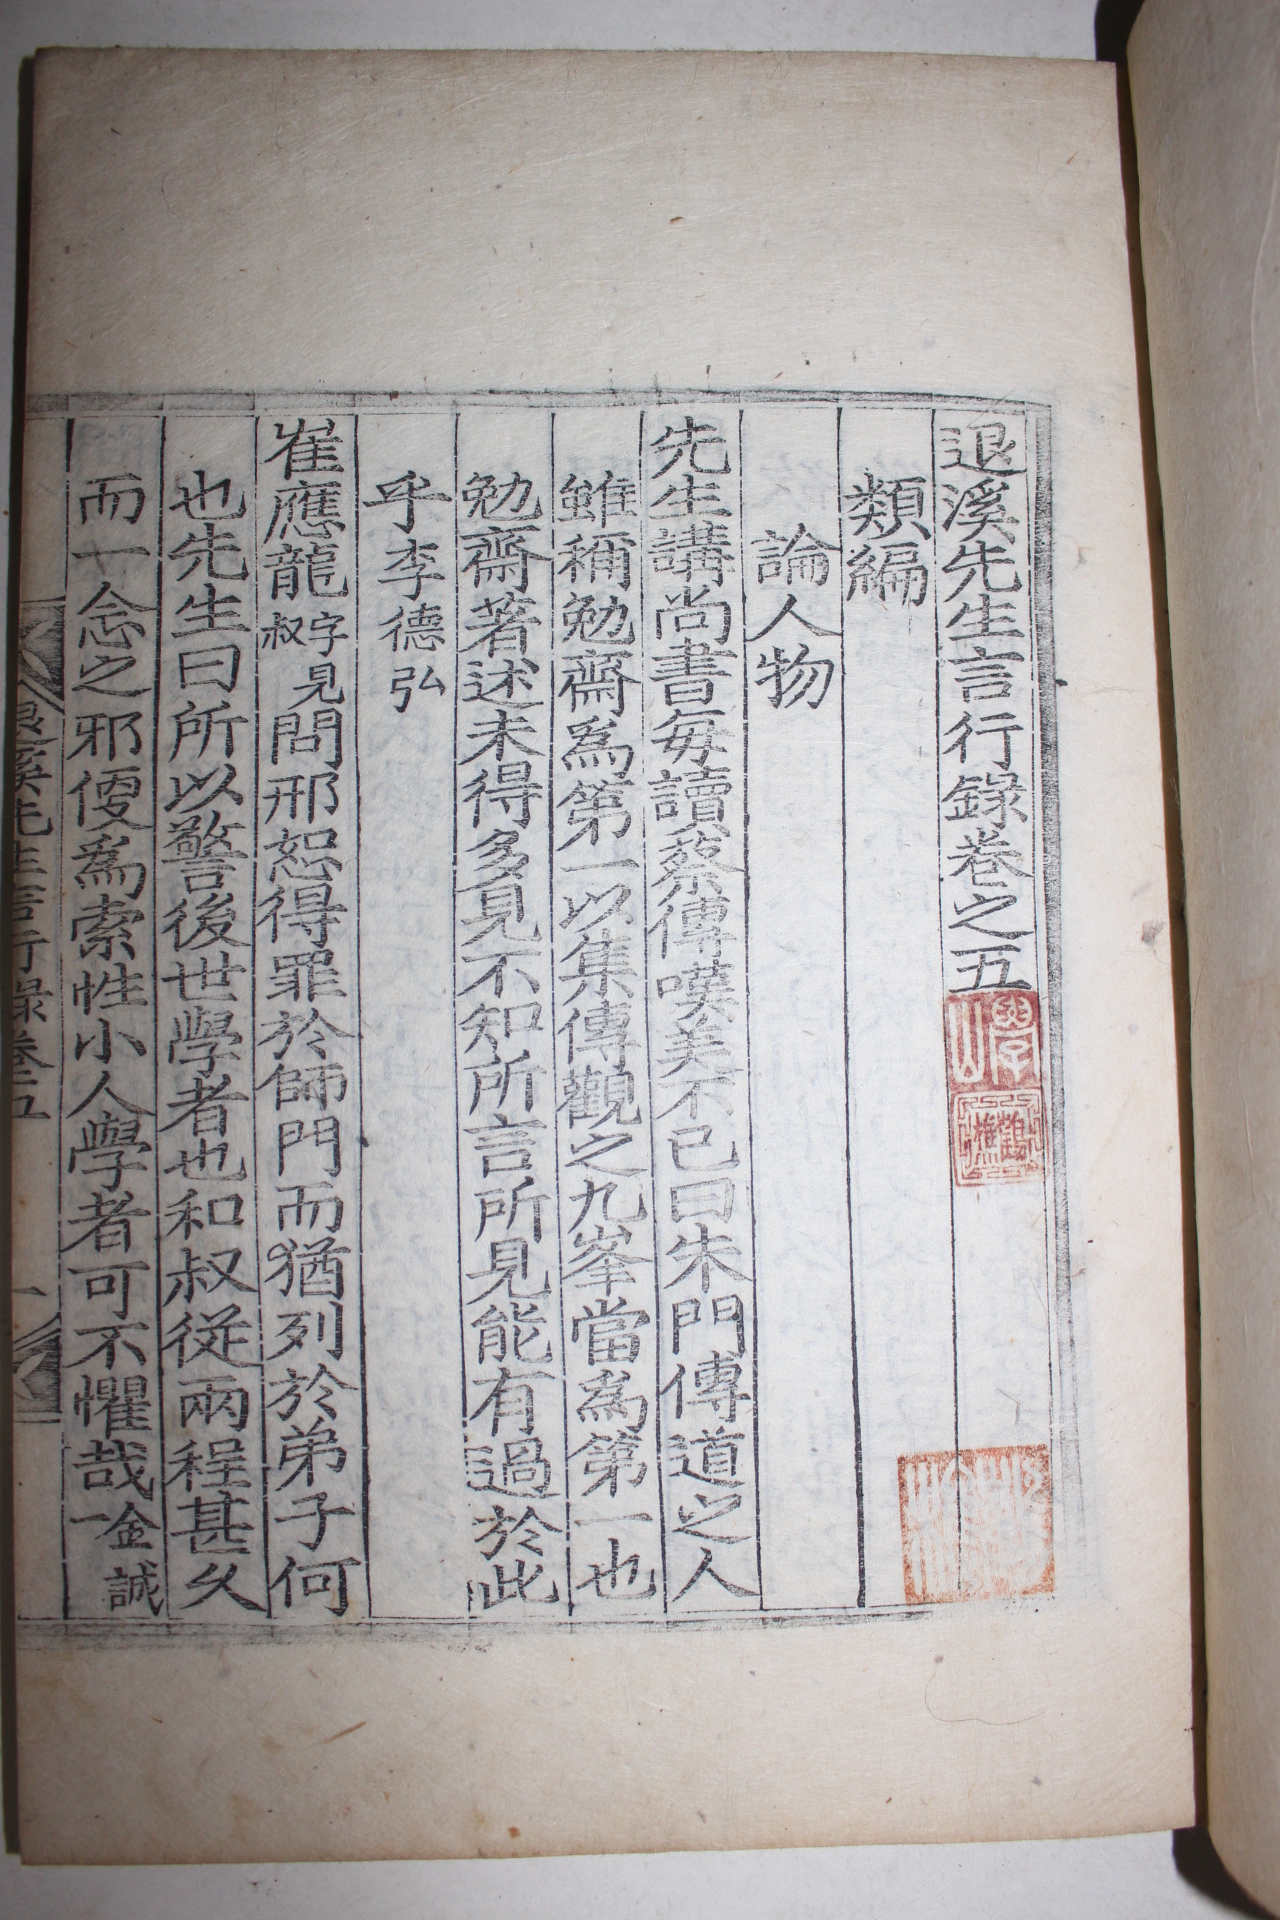 退溪先生言行錄卷之五
類編
論人物
先生講尚書每讀蔡傳嘆美不已曰朱門傳道之人
雖稱勉齋爲第一以集傳觀之九峯當爲第一也
勉齋著述未得多見不知所言所見能有過於此
乎李德弘
崔應龍字見叔問邢恕得罪於師門而猶列於弟子何
也先生曰所以警後世學者也和叔從兩程甚久
而一念之邪便爲索性小人學者可不懼哉金誠一
退溪先生言行錄卷五
一
鶴樵